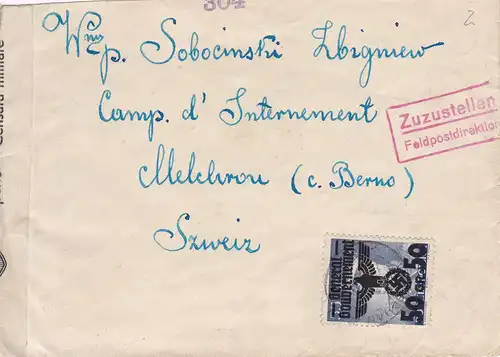 304
Wnyp. Sobocinski Zbigniew
Camp. d' Internement
Melchrou (c. Berno)
Szweiz
Zuzustellen
Feldpostdirektion
General-
gouvernement
50 GR. 50
2